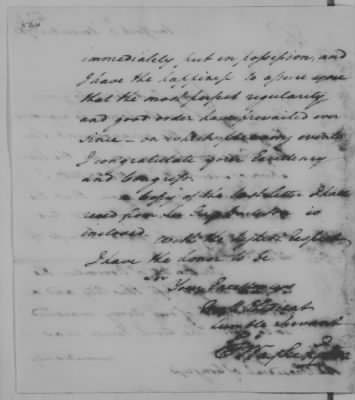 immediately put in possession, and
I have the happiness to assure you
that the most perfect regularity
and good order have prevailed ever
since – on which pleasing events
I congratulate your Excellency
and Congress.
a Copy of the last letter I have
recd from Sir Guy is
inclosed. With the highest
I have the honor to be
Sir
Your Excellencys
Most Obedient
humble Servant
Go Washington